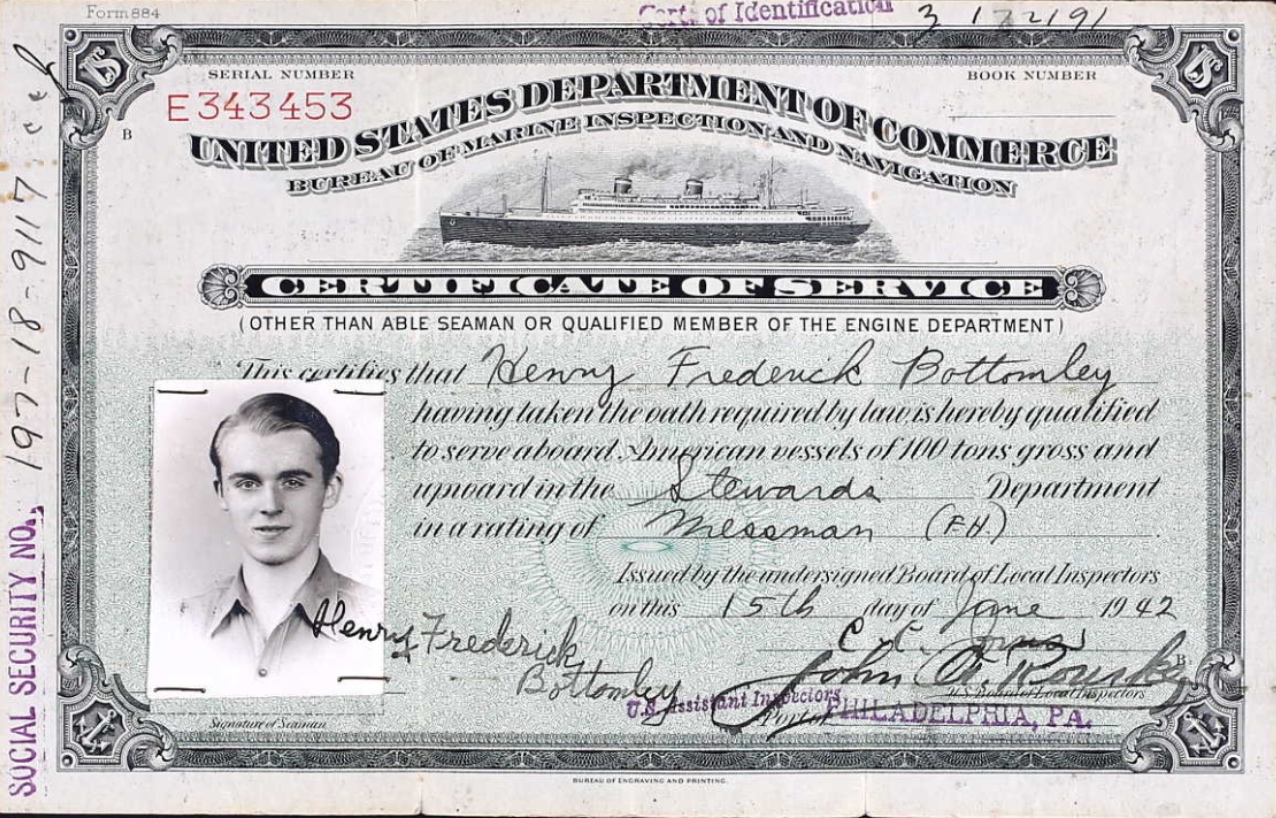 Form 884
Cert. of Identification 3 172191
SERIAL NUMBER
E343453
BOOK NUMBER
B
UNITED STATES DEPARTMENT OF COMMERCE
BUREAU OF MARINE INSPECTION AND NAVIGATION
CERTIFICATE OF SERVICE
(OTHER THAN ABLE SEAMAN OR QUALIFIED MEMBER OF THE ENGINE DEPARTMENT)
This certifies that Henry Frederick Bottomley
having taken the oath required by law, is hereby qualified
to serve aboard American vessels of 100 tons gross and
upward in the Stewards Department
in a rating of Messman (F.H.)
Issued by the undersigned Board of Local Inspectors
on this 15th day of June 1942
C. C.
John A.
B
U.S. Board of Local Inspectors
Henry Frederick
Bottomley
U.S. Assistant Inspectors
Port of PHILADELPHIA, PA.
Signature of Seaman
BUREAU OF ENGRAVING AND PRINTING.
SOCIAL SECURITY NO., 197-18-9117
US
US